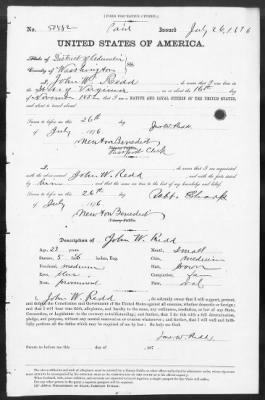 [FORM FOR NATIVE CITIZEN.]
No. Paid Issued July 26, 1876
UNITED STATES OF AMERICA.
State of District of Columbia
County of Washington ss.
I, John W. Redd, do swear that I was born in
State of Virginia on or about the 16th day
of November 1852 that I am a NATIVE AND LOYAL CITIZEN OF THE UNITED STATES,
and about to travel abroad.
Sworn to before me this 26th day
of July, 1876 Jno. W. Redd.
Newton Benedict
Passport Clerk
I, do swear that I am acquainted
with the above-named John W. Redd and with the facts stated
by him and that the same are true to the best of my knowledge and belief.
Sworn to before me this 26th day
of July 1876
Newton Benedict
Description of John W. Redd
Age: 23 years Mouth: small
Stature: 5 inches, Eng. Chin: medium
Forehead: medium Hair: brown
Eyes: blue Complexion: fair
Nose: prominent Face: oval
I, John W. Redd do solemnly swear that I will support, protect,
and defend the Constitution and Government of the United States against all enemies, whether domestic or foreign;
and that I will bear true faith, allegiance, and loyalty to the same, any ordinance, resolution, or law of any State,
Convention, or Legislature to the contrary notwithstanding; and further, that I do this with a full determination,
pledge, and purpose, without any mental reservation or evasion whatsoever; and further, that I will well and faithfully
perform all the duties which may be required of me by law: So help me God.
Jno. W. Redd,
Sworn to before me this day
of 187